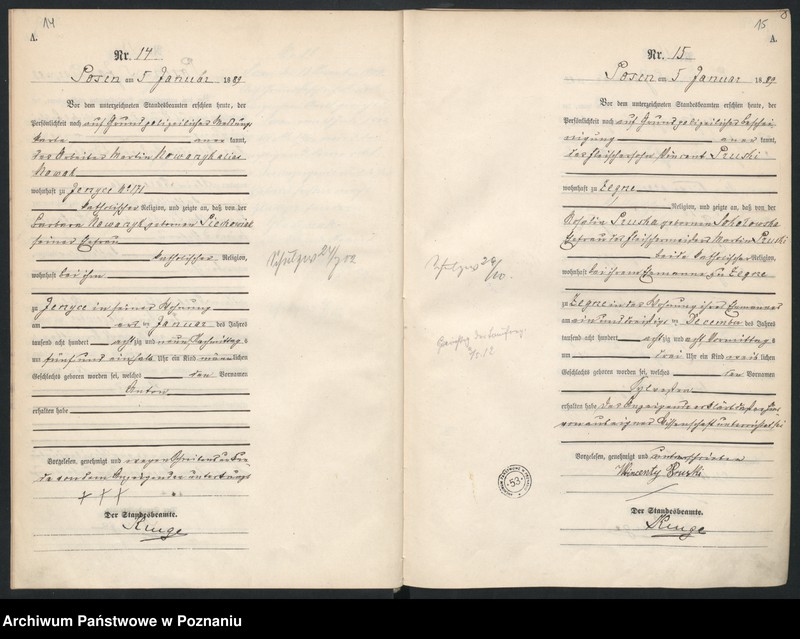 14
A.
Nr. 14
Posen am 5 Januar 1889
Vor dem unterzeichneten Standesbeamten erschien heute, der
Persönlichkeit nach auf Grund polizeilicher Meldungs
karte aner kannt,
der Arbeiter Martin Nowarzyk alias
Nowak
wohnhaft zu Jerzyce No 171
katholischer Religion, und zeigte an, daß von der
Barbara Nowarzyk geborenen
seiner Ehefrau
katholischer Religion,
wohnhaft bei ihm
zu Jerzyce in seiner Wohnung
am ersten Januar des Jahres
tausend acht hundert achtzig und neun Nachmittags
um fünf und ein halb Uhr ein Kind männlichen
Geschlechts geboren worden sei, welches den Vornamen
Anton
erhalten habe
Vorgelesen, genehmigt und wegen Schreibensunkun
de von dem Anzeigenden unterkreuzt
+ + +
Der Standesbeamte.
15
A.
Nr. 15
Posen am 5 Januar 1889
Vor dem unterzeichneten Standesbeamten erschien heute, der
Persönlichkeit nach auf Grund polizeilicher Beschei
nigung aner kannt,
der Fleischersohn Vincent Pruski
wohnhaft zu
Religion, und zeigte an, daß von der
Rosalia Pruska geborenen Sokolowska
Ehefrau des Fleischermeisters Martin Pruski
beide katholischer Religion,
wohnhaft bei ihrem Ehemanne zu
zu in der Wohnung ihres Ehemannes
am ein und dreißigsten Dezember des Jahres
tausend acht hundert achtzig und acht Vormittags
um drei Uhr ein Kind weiblichen
Geschlechts geboren worden sei, welches den Vornamen
erhalten habe der Anzeigende erklärt daß er hier
von aus eigener Wissenschaft unterrichtet sei
Vorgelesen, genehmigt und unterschrieben
Wincenty Pruski
Der Standesbeamte.
53
Archiwum Państwowe w Poznaniu